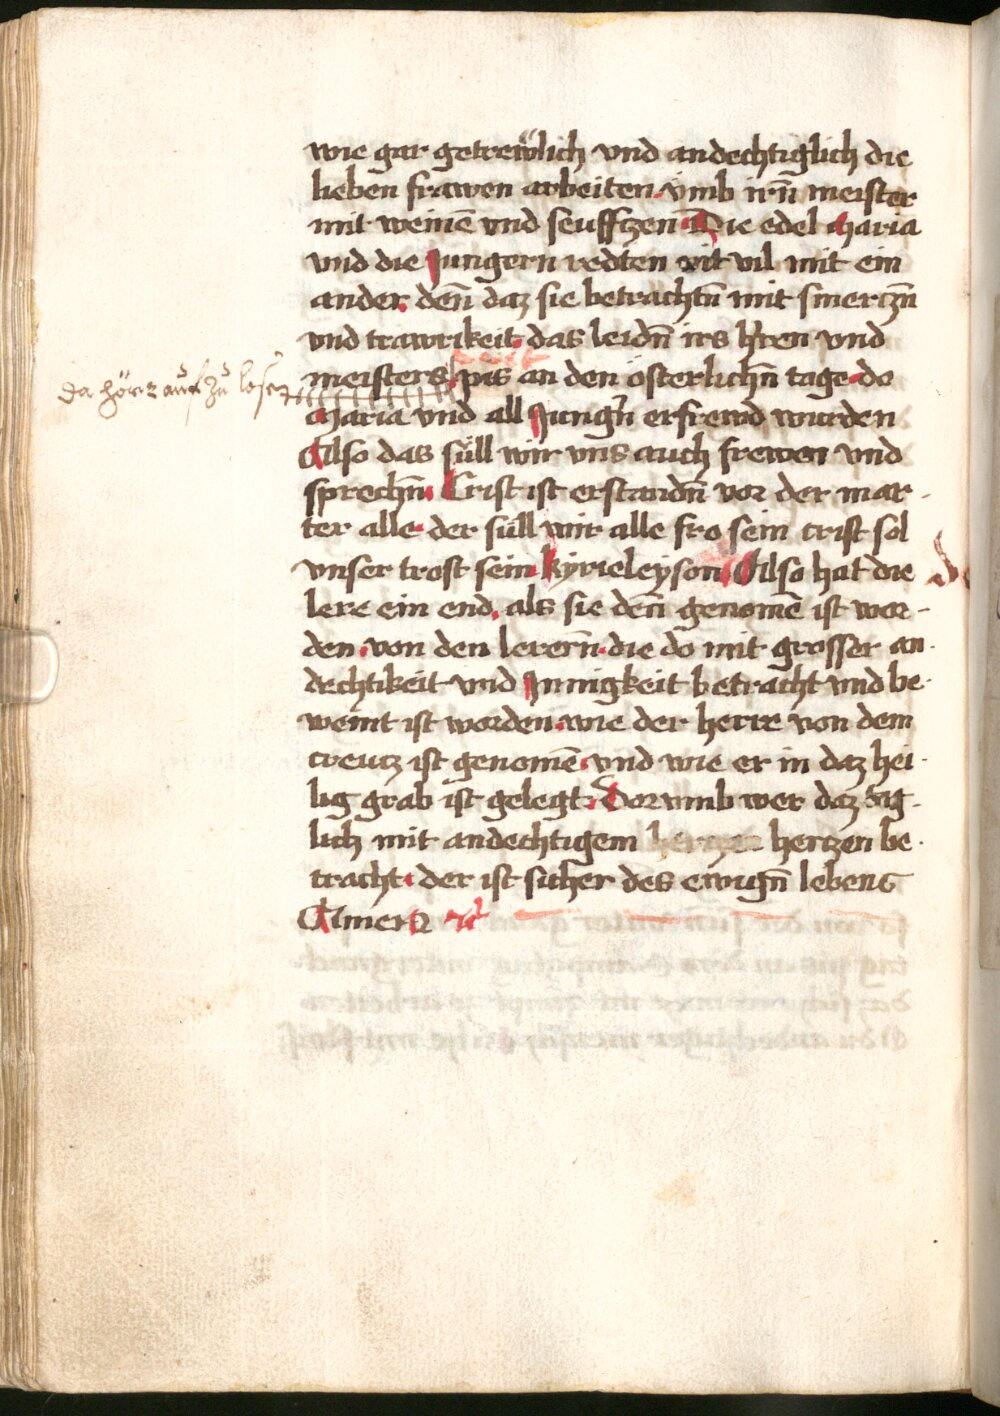 wie gar getrewlich vnd andechtiglich die
lieben frawen arbeiten vmb irn̄ meister
mit weinē vnd seufftzen Die edel Maria
vnd die Jungern redten nit vil mit ein
ander denn̄ daz sie betrachtn̄ mit smertzn̄
vnd trawrikeit das leidn̄ irs hren vnd
da hört auf zu losen
meisters pis an den österlichn̄ tage do
Maria vnd all Jungn̄ erfrewd wurden
Also das süll wir vns auch frewen vnd
sprechn̄ Crist ist erstandn̄ von der mar-
ter alle der süll wir alle fro sein crist sol
vnser trost sein kyrieleyson Also hat die
lere ein end als sie denn̄ genomē ist wor-
den von den lerern̄ die do mit grosser an-
dechtikeit vnd Jnnigkeit betracht vnd be-
weint ist worden wie der herre von dem
creutz ist genomē vnd wie er in daz hei-
lig grab ist gelegt Dorvmb wer daz
lich mit andechtigem hertzen be-
tracht der ist sicher des ewign̄ lebens
Amen